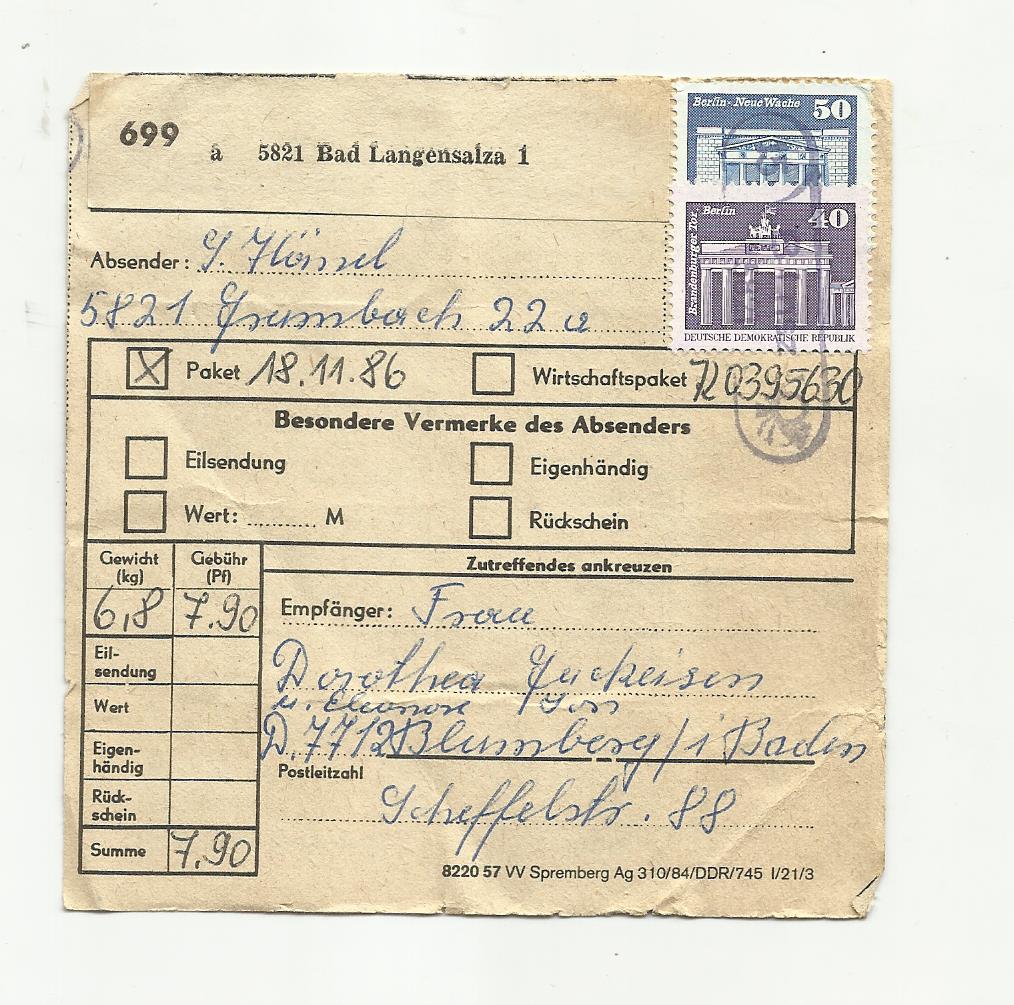 699 a 5821 Bad Langensalza 1
Berlin - Neue Wache 50
Berlin 40
Brandenburger Tor
DEUTSCHE DEMOKRATISCHE REPUBLIK
Absender:
5821 Grumbach 22 a
X Paket 18.11.86 Wirtschaftspaket 720395630
Besondere Vermerke des Absenders
Eilsendung Eigenhändig
Wert: ......... M Rückschein
Zutreffendes ankreuzen
Gewicht (kg) Gebühr (Pf)
6,8 7.90
Eil-
sendung
Wert
Eigen-
händig
Rück-
schein
Summe 7,90
Empfänger: Frau
Dorothea
u. Eleonore
D. 7712 Blumberg / i Baden
Postleitzahl
Scheffelstr. 88
8220 57 VV Spremberg Ag 310/84/DDR/745 I/21/3